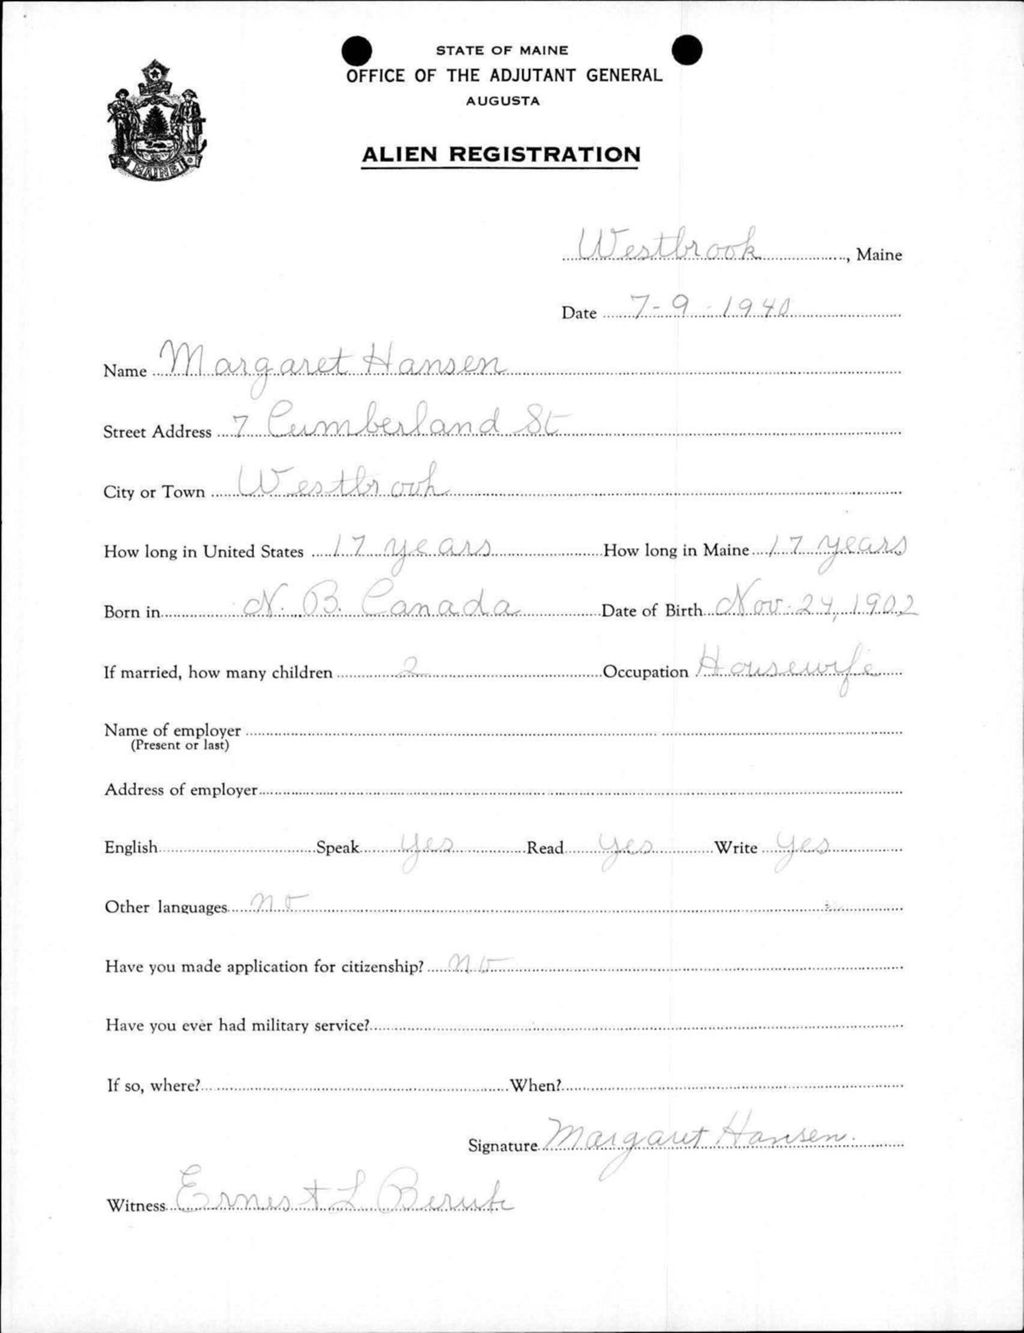 STATE OF MAINE
OFFICE OF THE ADJUTANT GENERAL
AUGUSTA
ALIEN REGISTRATION
MAINE
Westbrook, Maine
Date 7-9-1940
Name Margaret Hansen
Street Address 7 Cumberland St
City or Town Westbrook
How long in United States 17 years How long in Maine 17 years
Born in N. B. Canada Date of Birth Nov. 24, 1902
If married, how many children 2 Occupation Housewife
Name of employer
(Present or last)
Address of employer
English Speak Yes Read Yes Write Yes
Other languages no
Have you made application for citizenship? no
Have you ever had military service?
If so, where? When?
Signature Margaret Hansen.
Witness Ernest L Berube